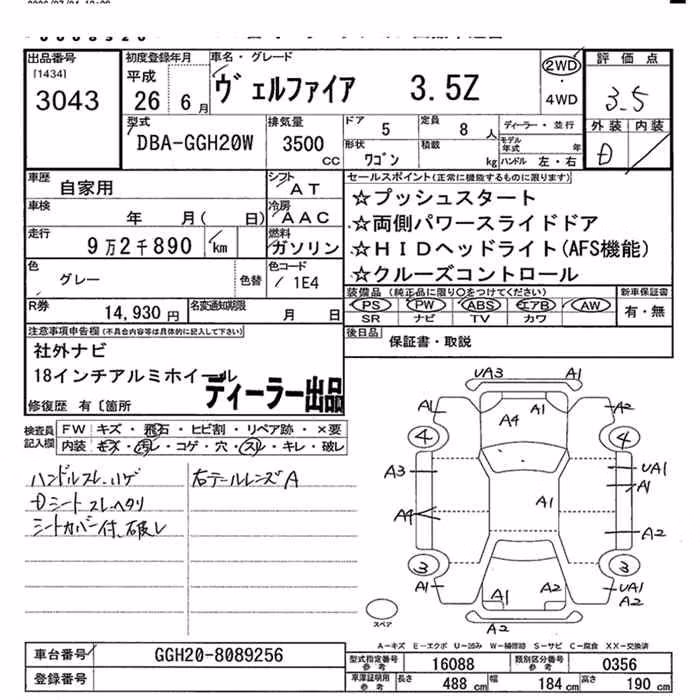 出品番号 初度登録年月 車名・グレード 2WD 評価点
[1434] 平成 ヴェルファイア 3.5Z ・ 3.5
3043 26年 6月 4WD 外装 内装
型式 排気量 ドア 5 定員 8人 ディーラー・並行 D
DBA-GGH20W 3500cc 形状 ワゴン 積載 kg モデル年式 年 ハンドル 左・右
車歴 自家用 シフト AT セールスポイント(正常に機能するものに限ります)
車検 年 月( 日) 冷房 AAC ☆プッシュスタート
☆両側パワースライドドア
走行 9万2千890 km 燃料 ガソリン ☆HIDヘッドライト(AFS機能)
色 グレー 色替 色コード 1E4 ☆クルーズコントロール
装備品(純正品に限り○をつけてください) 新車保証書
R券 14,930円 名変通知期限 月 日 PS PW ABS エアB AW 有・無
SR ナビ TV カワ
注意事項申告欄(不具合内容等は具体的に記入して下さい) 後日品 保証書・取説
社外ナビ
18インチアルミホイール
ディーラー出品
修復歴 有〔箇所
検査員記入欄 FW キズ・飛石・ヒビ割・リペア跡・×要
内装 キズ・汚レ・コゲ・穴・スレ・キレ・破レ
ハンドルスレ、ハゲ 右テールレンズA
Dシートスレ、ヘタリ
シートカバー付、破レ
UA3 A1
A1 A4 A1 A2
4 4
A3 UA1
A1 A1
A4 A2
3 3
A1 A1 A2 UA1
A2
スペア
A-キズ E-エクボ U-凹み W-補修跡 S-サビ C-腐食 XX-交換済
車台番号 GGH20-8089256 型式指定番号 参考 16088 類別区分番号 参考 0356
登録番号 車庫証明用 参考 長さ 488cm 幅 184cm 高さ 190cm